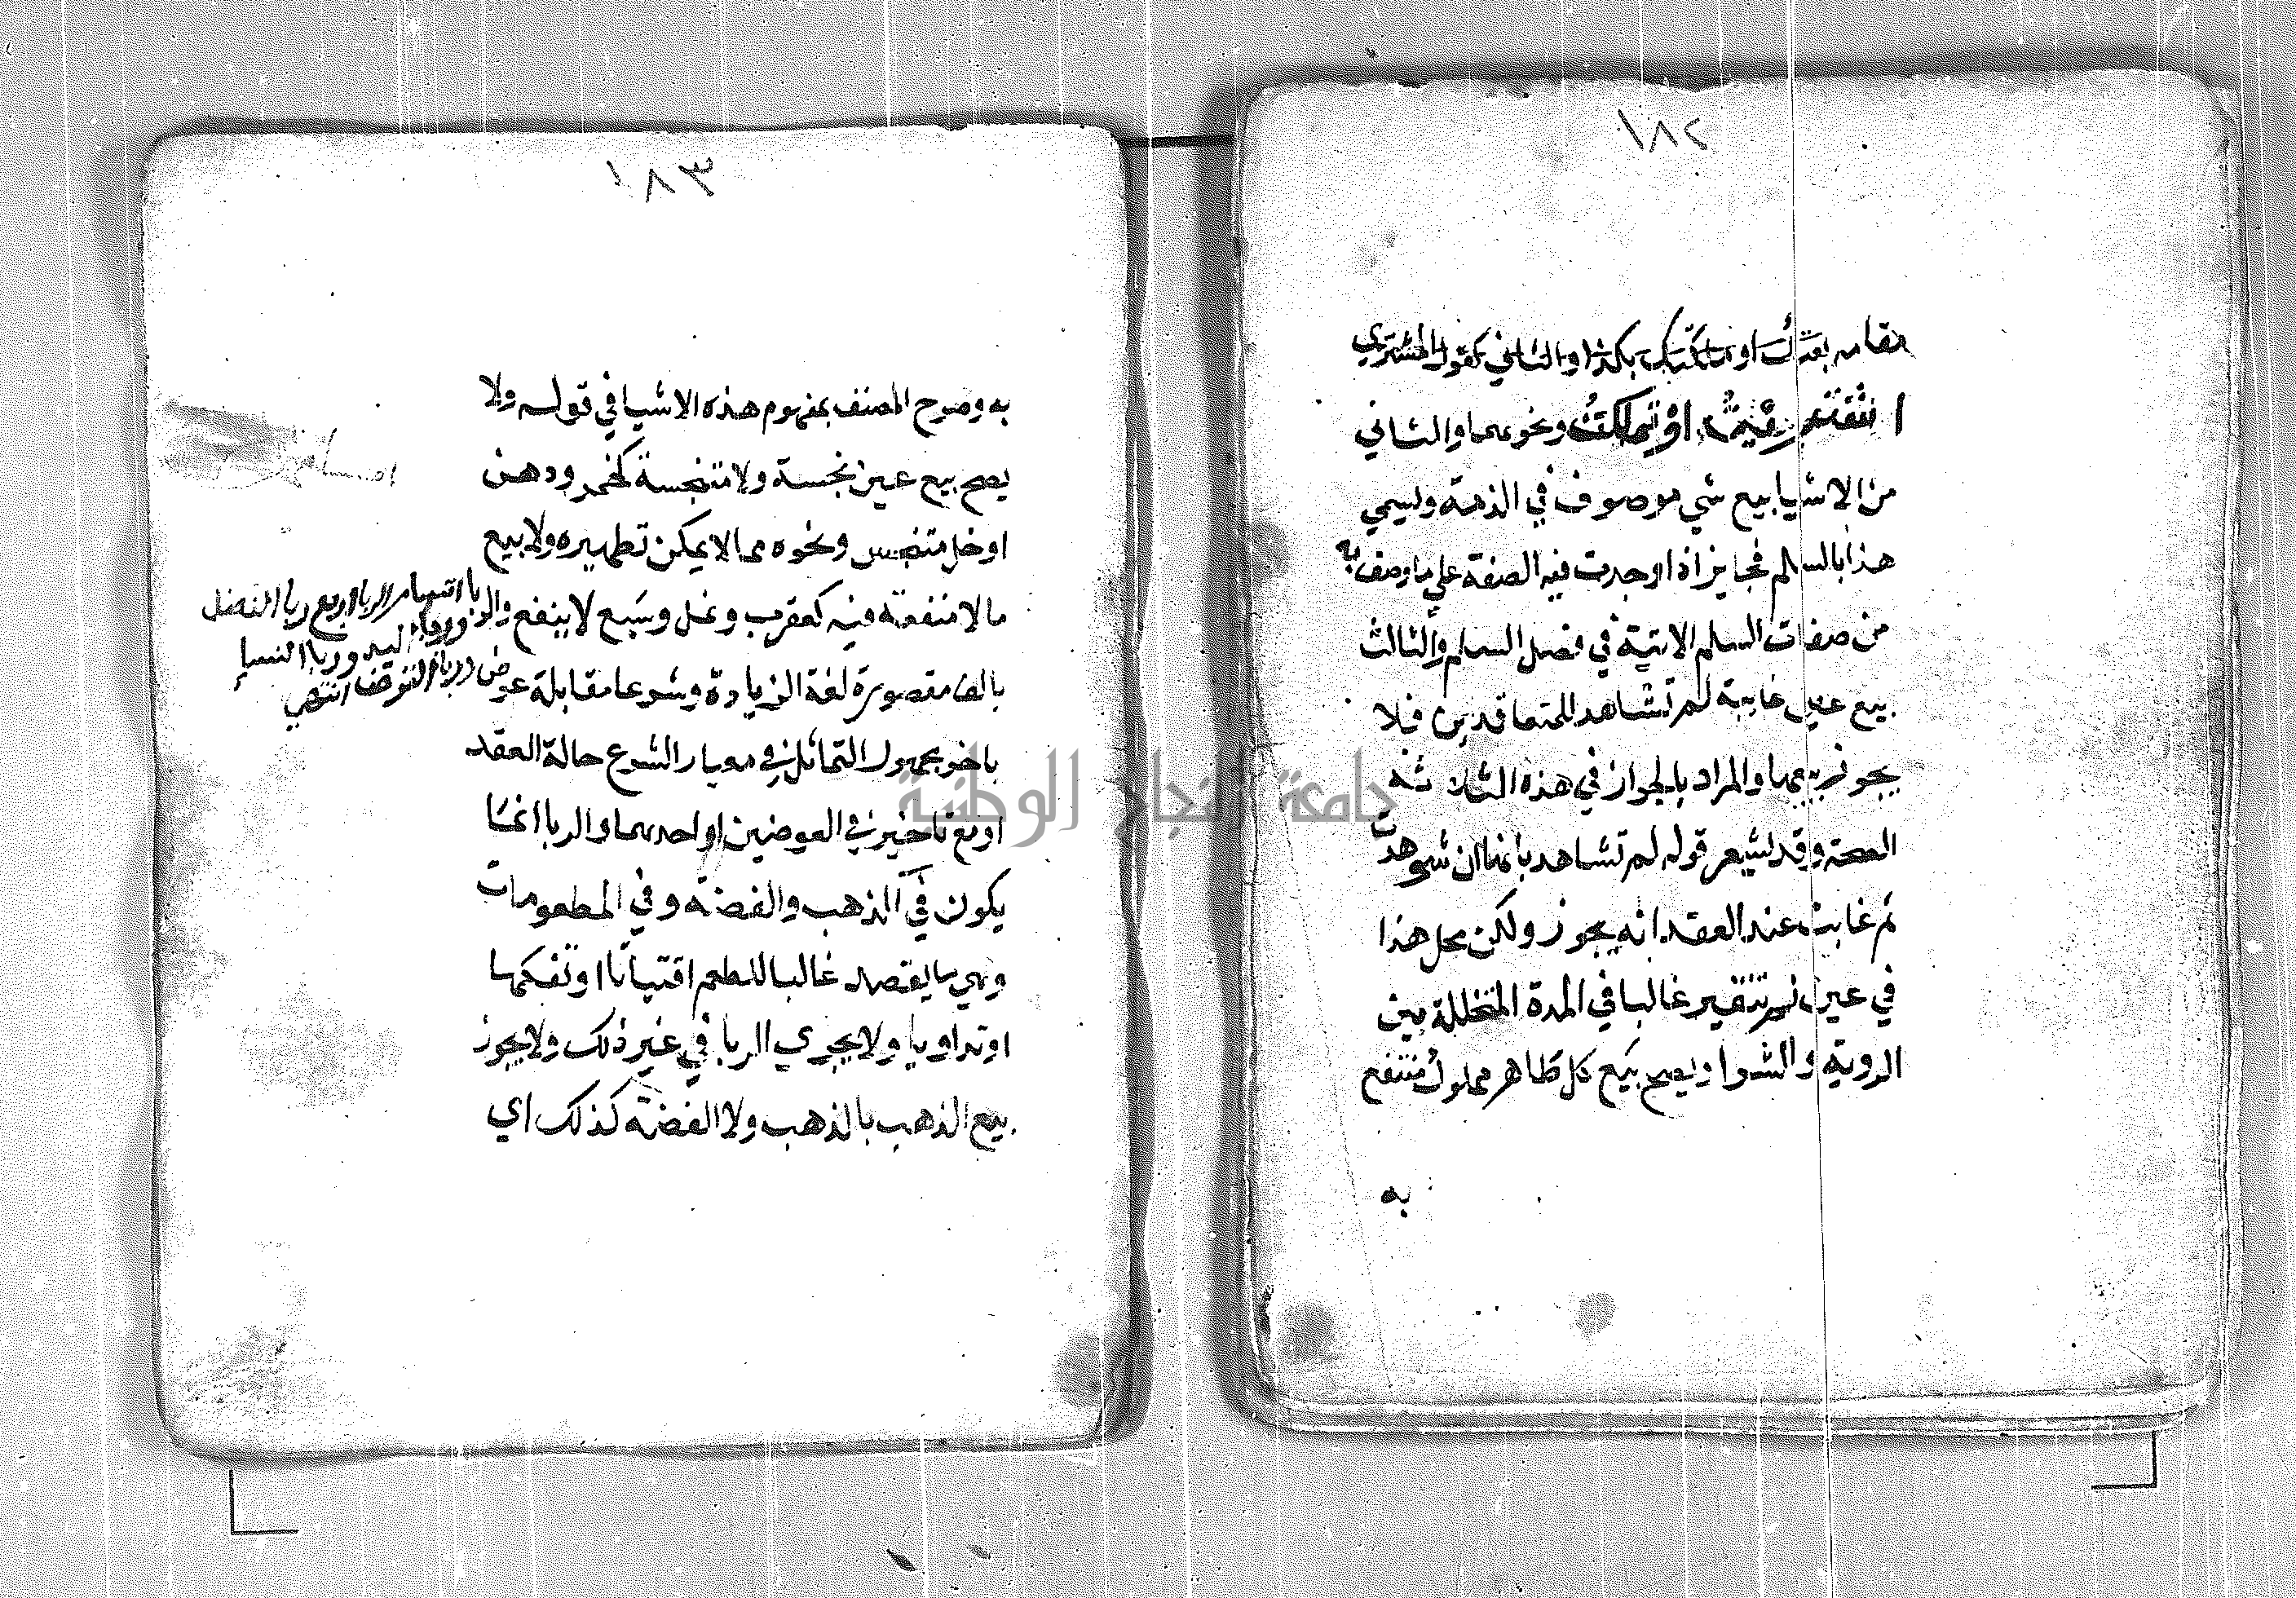 ١٨٢
مقامه بعتك او ملكتك بكذا والثاني كقول المشتري
او تملكت ونحوهما والثاني
من الاشيا بيع شي موصوف في الذمة ويسمي
هذا بالسلم فجايز اذا وجدت فيه الصفة علي ما وصف به
من صفات السلم الاتية في فصل السلم والثالث
بيع عين غايبة لم تشاهد للمتعاقدين فلا
يجوز بيعها والمراد بالجواز في هذه الثلاثة
الصحة وقد يشعر قوله لم تشاهد بانها ان شوهدت
ثم غابت عند العقد انه يجوز ولكن محل هذا
في عين لم تتغير غالبا في المدة المتخللة بين
الروية والشرا ويصح بيع كل طاهر مملوك منتفع
به
١٨٣
به وصرح المصنف بمفهوم هذه الاشيا في قوله ولا
يصح بيع عين نجسة ولا متنجسة كخمر ودهن
او خل متنجس ونحوه مما لا يمكن تطهيره ولا بيع
ما لا منفعة فيه كعقرب ونمل وسبع لا ينفع والربا
بالف مقصورة لغة الزيادة وشرعا مقابلة عوض
باخر مجهول التماثل في معيار الشرع حالة العقد
او مع تاخير في العوضين او احدهما والربا انما
يكون في الذهب والفضة وفي المطعومات
وهي ما يقصد غالبا للطعم اقتياتا او تفكها
او تداويا ولا يجري الربا في غير ذلك ولا يجوز
بيع الذهب بالذهب ولا الفضة كذلك اي
اقسام الربا اربع ربا الفضل
وربا اليد وربا النسا
وربا القرض انتهي
جامعة النجاح الوطنية